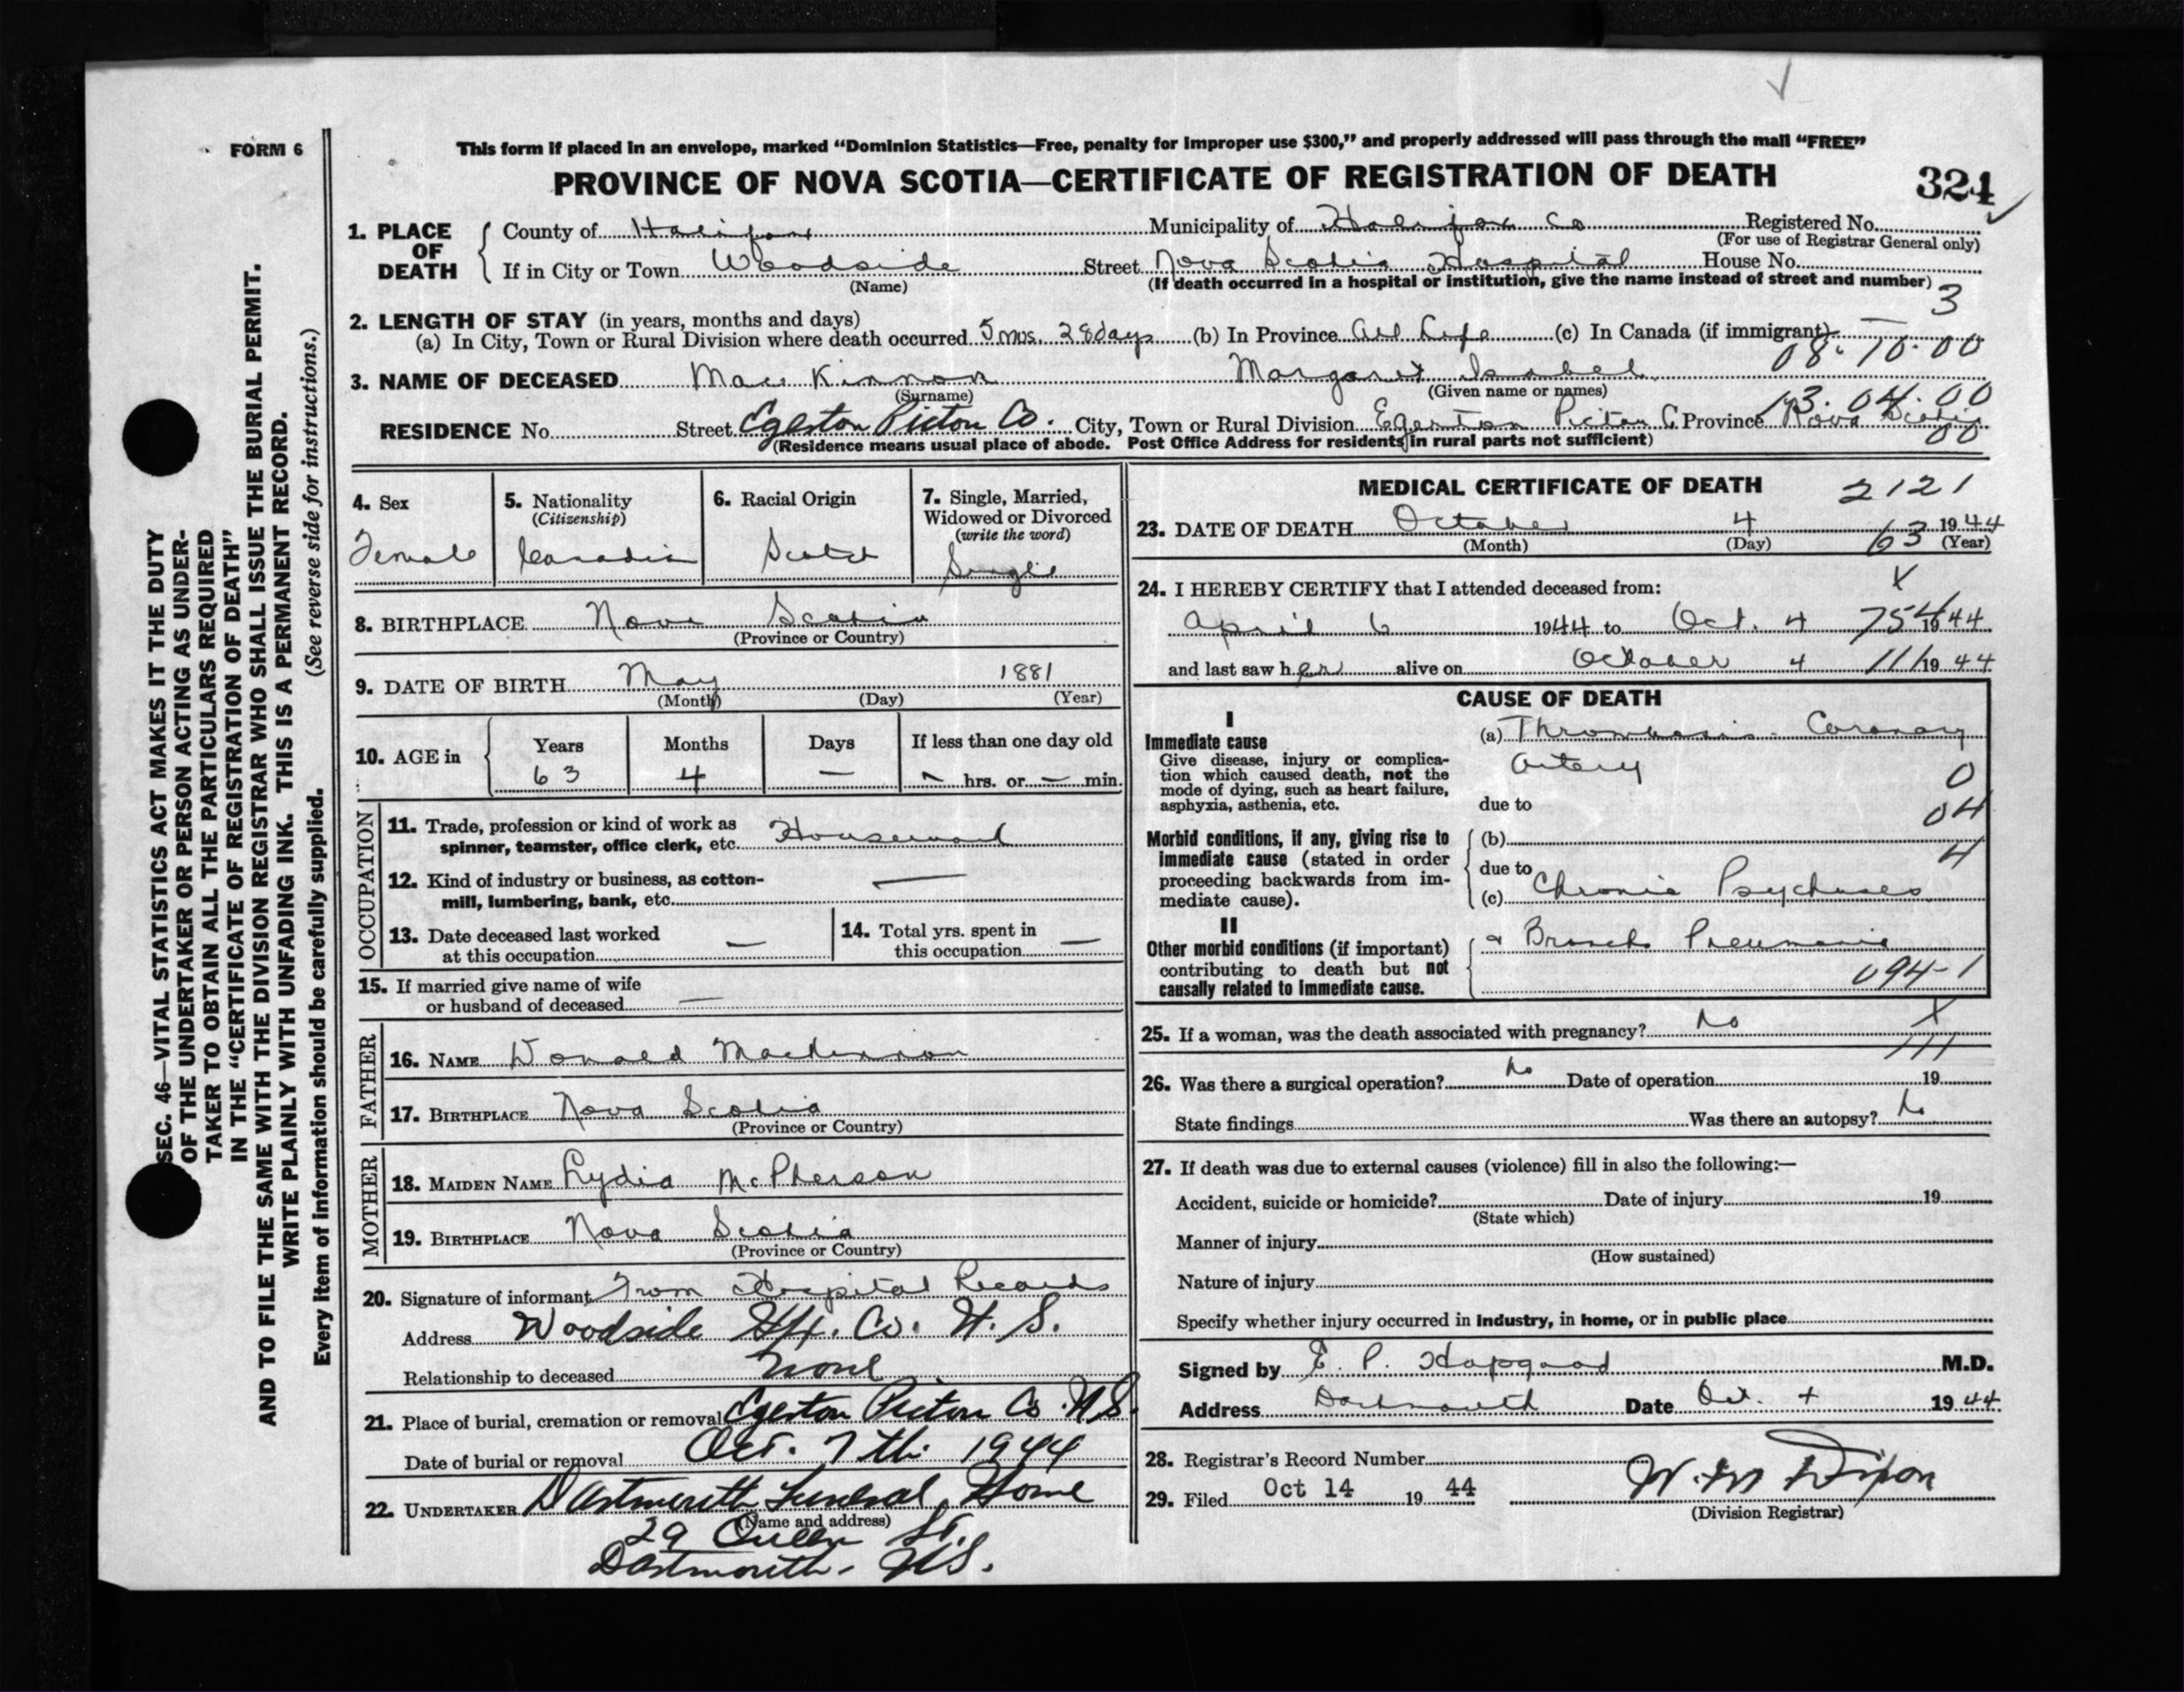 FORM 6
This form if placed in an envelope, marked "Dominion Statistics—Free, penalty for improper use $300," and properly addressed will pass through the mail "FREE"
PROVINCE OF NOVA SCOTIA—CERTIFICATE OF REGISTRATION OF DEATH
324
SEC. 46—VITAL STATISTICS ACT MAKES IT THE DUTY
OF THE UNDERTAKER OR PERSON ACTING AS UNDER-
TAKER TO OBTAIN ALL THE PARTICULARS REQUIRED
IN THE "CERTIFICATE OF REGISTRATION OF DEATH"
AND TO FILE THE SAME WITH THE DIVISION REGISTRAR WHO SHALL ISSUE THE BURIAL PERMIT.
WRITE PLAINLY WITH UNFADING INK. THIS IS A PERMANENT RECORD.
Every item of information should be carefully supplied. (See reverse side for instructions.)
1. PLACE OF DEATH
County of Halifax Municipality of Halifax Co Registered No.
(For use of Registrar General only)
If in City or Town Woodside Street Nova Scotia Hospital House No.
(Name) (If death occurred in a hospital or institution, give the name instead of street and number)
3
2. LENGTH OF STAY (in years, months and days)
(a) In City, Town or Rural Division where death occurred 5 mos. 28 days (b) In Province All Life (c) In Canada (if immigrant) —
08.10.00
3. NAME OF DECEASED MacKinnon Margaret Isabel
(Surname) (Given name or names)
13.04.00
RESIDENCE No. Street Egerton Pictou Co. City, Town or Rural Division Egerton Pictou C Province Nova Scotia
00
(Residence means usual place of abode. Post Office Address for residents in rural parts not sufficient)
4. Sex
Female
5. Nationality
(Citizenship)
Canadian
6. Racial Origin
Scotch
7. Single, Married,
Widowed or Divorced
(write the word)
Single
8. BIRTHPLACE Nova Scotia
(Province or Country)
9. DATE OF BIRTH May 1881
(Month) (Day) (Year)
10. AGE in
Years Months Days If less than one day old
63 4 — — hrs. or — min.
OCCUPATION
11. Trade, profession or kind of work as
spinner, teamster, office clerk, etc. Housework
12. Kind of industry or business, as cotton-
mill, lumbering, bank, etc. —
13. Date deceased last worked
at this occupation —
14. Total yrs. spent in
this occupation —
15. If married give name of wife
or husband of deceased —
FATHER
16. NAME Donald MacKinnon
17. BIRTHPLACE Nova Scotia
(Province or Country)
MOTHER
18. MAIDEN NAME Lydia McPherson
19. BIRTHPLACE Nova Scotia
(Province or Country)
20. Signature of informant From Hospital Records
Address Woodside Hfx. Co. N. S.
Relationship to deceased None
21. Place of burial, cremation or removal Egerton Pictou Co. N S.
Date of burial or removal Oct. 7th. 1944
22. UNDERTAKER Dartmouth Funeral Home
(Name and address)
29 Queen St.
Dartmouth. N.S.
MEDICAL CERTIFICATE OF DEATH
2121
23. DATE OF DEATH October 4 1944
(Month) (Day) (Year)
63
24. I HEREBY CERTIFY that I attended deceased from:
X
April 6 1944 to Oct. 4 1944
754
and last saw her alive on October 4 1944
111
CAUSE OF DEATH
I
Immediate cause
Give disease, injury or complica-
tion which caused death, not the
mode of dying, such as heart failure,
asphyxia, asthenia, etc.
(a) Thrombosis - Coronary
Artery
0
due to
04
Morbid conditions, if any, giving rise to
immediate cause (stated in order
proceeding backwards from im-
mediate cause).
(b)
4
due to
(c) Chronic Psychoses
II
Other morbid conditions (if important)
contributing to death but not
causally related to immediate cause.
Broncho Pneumonia
094-1
25. If a woman, was the death associated with pregnancy? No
X
111
26. Was there a surgical operation? No Date of operation 19
State findings Was there an autopsy? No
27. If death was due to external causes (violence) fill in also the following:—
Accident, suicide or homicide? Date of injury 19
(State which)
Manner of injury
(How sustained)
Nature of injury
Specify whether injury occurred in industry, in home, or in public place
Signed by E. P. Hapgood M.D.
Address Dartmouth Date Oct. 4 1944
28. Registrar's Record Number
29. Filed Oct 14 19 44 W. M Dixon
(Division Registrar)